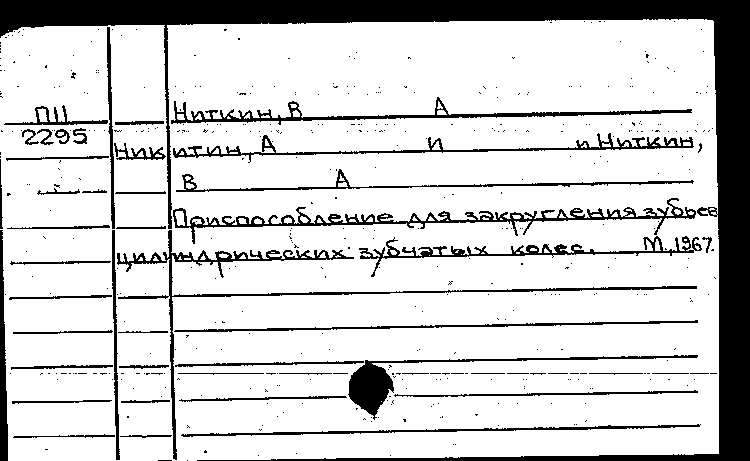 П11 Ниткин, В А
2295
Никитин, А И и Ниткин,
В А
Приспособление для закругления зубьев
цилиндрических зубчатых колес. М., 1967.